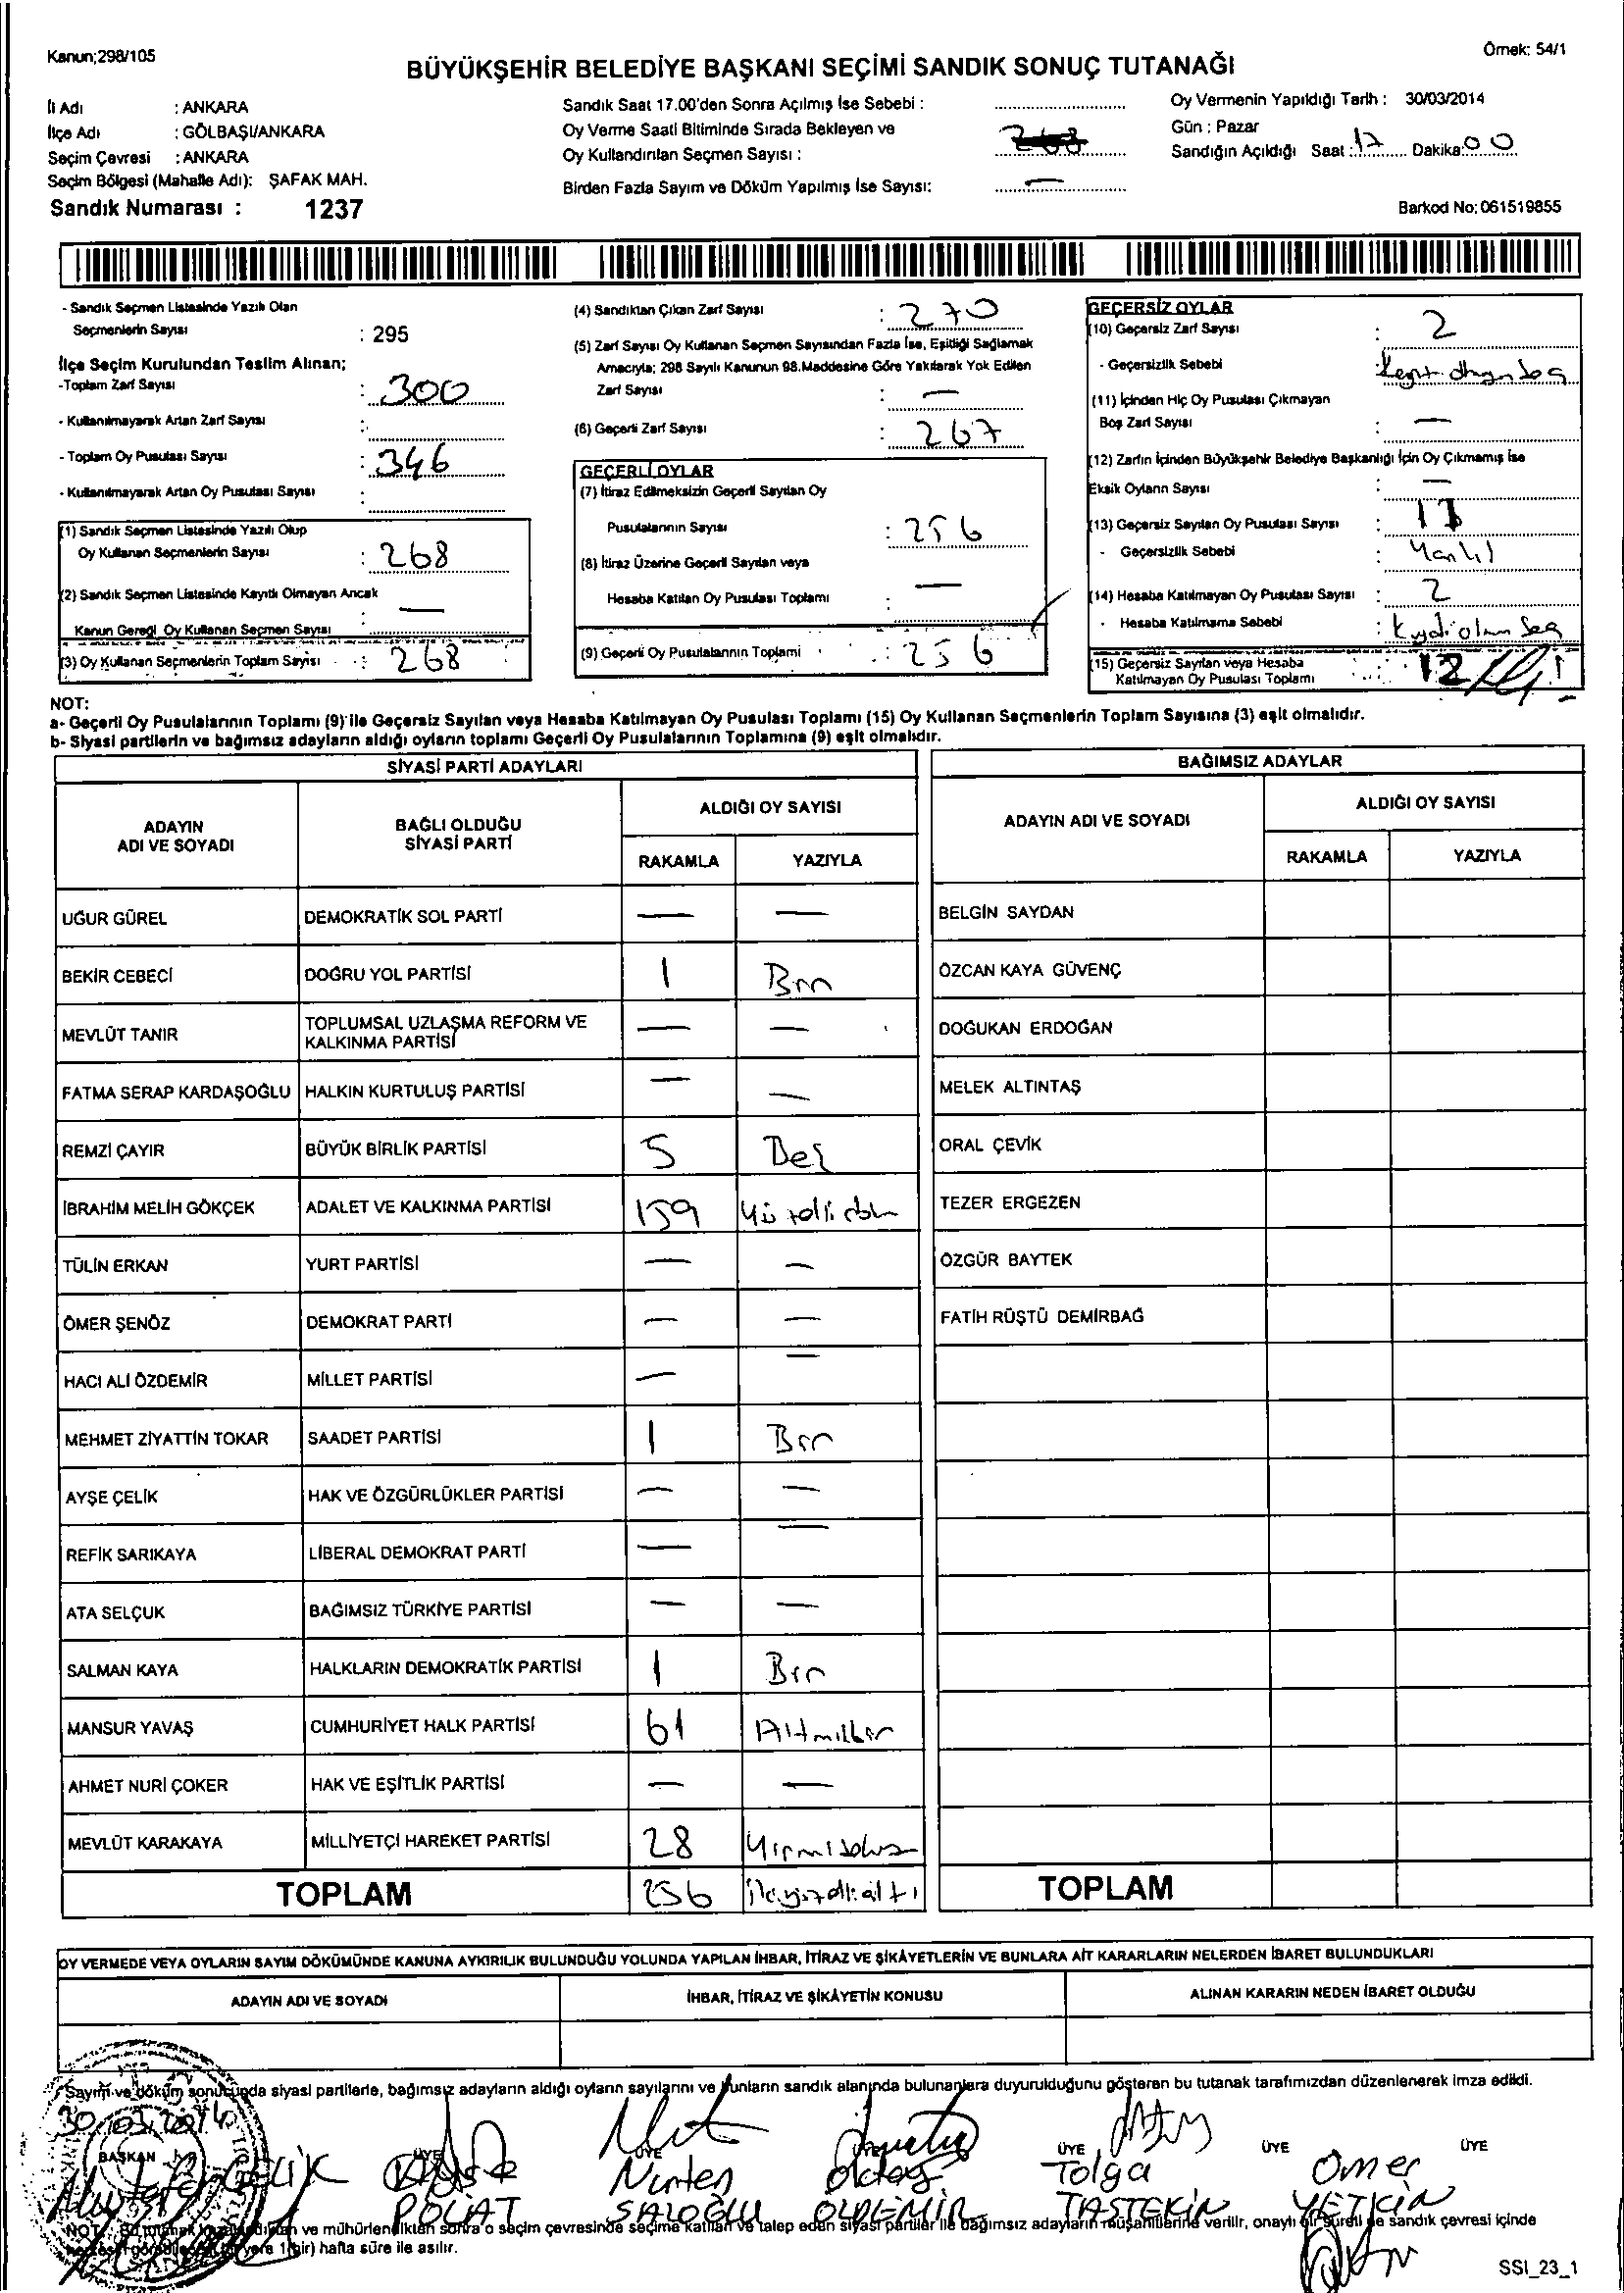 Kanun;298/105
Örnek: 54/1
BÜYÜKŞEHİR BELEDİYE BAŞKANI SEÇİMİ SANDIK SONUÇ TUTANAĞI
İl Adı : ANKARA
İlçe Adı : GÖLBAŞI/ANKARA
Seçim Çevresi : ANKARA
Seçim Bölgesi (Mahalle Adı): ŞAFAK MAH.
Sandık Numarası : 1237
Sandık Saat 17.00'den Sonra Açılmış İse Sebebi :
Oy Verme Saati Bitiminde Sırada Bekleyen ve
Oy Kullandırılan Seçmen Sayısı :
Birden Fazla Sayım ve Döküm Yapılmış İse Sayısı: —
Oy Vermenin Yapıldığı Tarih : 30/03/2014
Gün : Pazar
Sandığın Açıldığı Saat : 17 Dakika: 00
Barkod No: 061519855
- Sandık Seçmen Listesinde Yazılı Olan
Seçmenlerin Sayısı : 295
İlçe Seçim Kurulundan Teslim Alınan;
-Toplam Zarf Sayısı : 300
- Kullanılmayarak Artan Zarf Sayısı :
- Toplam Oy Pusulası Sayısı : 346
- Kullanılmayarak Artan Oy Pusulası Sayısı :
(1) Sandık Seçmen Listesinde Yazılı Olup
Oy Kullanan Seçmenlerin Sayısı : 268
(2) Sandık Seçmen Listesinde Kayıtlı Olmayan Ancak
Kanun Gereği Oy Kullanan Seçmen Sayısı : —
(3) Oy Kullanan Seçmenlerin Toplam Sayısı : 268
(4) Sandıktan Çıkan Zarf Sayısı : 270
(5) Zarf Sayısı Oy Kullanan Seçmen Sayısından Fazla İse, Eşitliği Sağlamak
Amacıyla; 298 Sayılı Kanunun 98.Maddesine Göre Yakılarak Yok Edilen
Zarf Sayısı : —
(6) Geçerli Zarf Sayısı : 267
GEÇERLİ OYLAR
(7) İtiraz Edilmeksizin Geçerli Sayılan Oy
Pusulalarının Sayısı : 256
(8) İtiraz Üzerine Geçerli Sayılan veya
Hesaba Katılan Oy Pusulası Toplamı : —
(9) Geçerli Oy Pusulalarının Toplamı : 256
GEÇERSİZ OYLAR
(10) Geçersiz Zarf Sayısı : 2
- Geçersizlik Sebebi :
(11) İçinden Hiç Oy Pusulası Çıkmayan
Boş Zarf Sayısı : —
(12) Zarfın İçinden Büyükşehir Belediye Başkanlığı İçin Oy Çıkmamış İse
Eksik Oyların Sayısı : —
(13) Geçersiz Sayılan Oy Pusulası Sayısı :
- Geçersizlik Sebebi :
(14) Hesaba Katılmayan Oy Pusulası Sayısı : 2
- Hesaba Katılmama Sebebi :
(15) Geçersiz Sayılan veya Hesaba
Katılmayan Oy Pusulası Toplamı : 12
NOT:
a- Geçerli Oy Pusulalarının Toplamı (9) ile Geçersiz Sayılan veya Hesaba Katılmayan Oy Pusulası Toplamı (15) Oy Kullanan Seçmenlerin Toplam Sayısına (3) eşit olmalıdır.
b- Siyasi partilerin ve bağımsız adayların aldığı oyların toplamı Geçerli Oy Pusulalarının Toplamına (9) eşit olmalıdır.
SİYASİ PARTİ ADAYLARI
ADAYIN ADI VE SOYADI BAĞLI OLDUĞU SİYASİ PARTİ ALDIĞI OY SAYISI
RAKAMLA YAZIYLA
UĞUR GÜREL DEMOKRATİK SOL PARTİ — —
BEKİR CEBECİ DOĞRU YOL PARTİSİ 1 Bir
MEVLÜT TANIR TOPLUMSAL UZLAŞMA REFORM VE KALKINMA PARTİSİ — —
FATMA SERAP KARDAŞOĞLU HALKIN KURTULUŞ PARTİSİ — —
REMZİ ÇAYIR BÜYÜK BİRLİK PARTİSİ 5 Beş
İBRAHİM MELİH GÖKÇEK ADALET VE KALKINMA PARTİSİ 159
TÜLİN ERKAN YURT PARTİSİ — —
ÖMER ŞENÖZ DEMOKRAT PARTİ — —
HACI ALİ ÖZDEMİR MİLLET PARTİSİ — —
MEHMET ZİYATTİN TOKAR SAADET PARTİSİ 1 Bir
AYŞE ÇELİK HAK VE ÖZGÜRLÜKLER PARTİSİ — —
REFİK SARIKAYA LİBERAL DEMOKRAT PARTİ — —
ATA SELÇUK BAĞIMSIZ TÜRKİYE PARTİSİ — —
SALMAN KAYA HALKLARIN DEMOKRATİK PARTİSİ 1 Bir
MANSUR YAVAŞ CUMHURİYET HALK PARTİSİ 61 Altmışbir
AHMET NURİ ÇOKER HAK VE EŞİTLİK PARTİSİ — —
MEVLÜT KARAKAYA MİLLİYETÇİ HAREKET PARTİSİ 28 Yirmisekiz
TOPLAM 256 ikiyüzelli altı
BAĞIMSIZ ADAYLAR
ADAYIN ADI VE SOYADI ALDIĞI OY SAYISI
RAKAMLA YAZIYLA
BELGİN SAYDAN
ÖZCAN KAYA GÜVENÇ
DOĞUKAN ERDOĞAN
MELEK ALTINTAŞ
ORAL ÇEVİK
TEZER ERGEZEN
ÖZGÜR BAYTEK
FATİH RÜŞTÜ DEMİRBAĞ
TOPLAM
OY VERMEDE VEYA OYLARIN SAYIM DÖKÜMÜNDE KANUNA AYKIRILIK BULUNDUĞU YOLUNDA YAPILAN İHBAR, İTİRAZ VE ŞİKÂYETLERİN VE BUNLARA AİT KARARLARIN NELERDEN İBARET BULUNDUKLARI
ADAYIN ADI VE SOYADI İHBAR, İTİRAZ VE ŞİKÂYETİN KONUSU ALINAN KARARIN NEDEN İBARET OLDUĞU
Sayım ve döküm sonucunda siyasi partilerle, bağımsız adayların aldığı oyların sayılarını ve bunların sandık alanında bulunanlara duyurulduğunu gösteren bu tutanak tarafımızdan düzenlenerek imza edildi.
30.03.2014
BAŞKAN ÜYE ÜYE ÜYE ÜYE ÜYE
POLAT
Nurten
Tolga TAŞTEKİN
Ömer YETKİN
ve mühürlendikten sonra o seçim çevresinde seçime katılan ve talep eden siyasi partiler ile bağımsız adayların müşahitlerine verilir, onaylı bir sureti de sandık çevresi içinde
1(bir) hafta süre ile asılır.
SSI_23_1